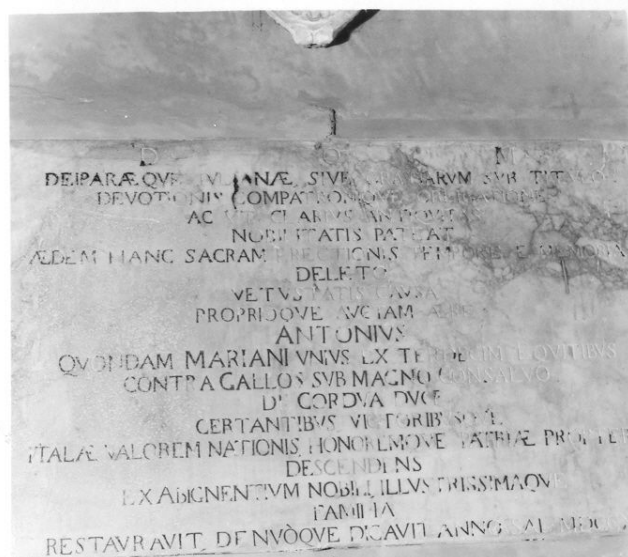 D O M
DEIPARÆ QVE IVLIANÆ SIVE SVB TIT
DEVOTIONIS COMPATRONIQVE
AC CLARIVS ANTIQVITAS
NOBILITATIS PATEAT
ÆDEM HANC SACRAM ERECTIONIS TEMPORE E MEMORIA
DELETO
VETVSTATIS CAVSA
PROPRIOQVE AVCTAM ÆRE
ANTONIVS
QVONDAM MARIANI VNIVS EX EQVITIBVS
CONTRA GALLOS SVB MAGNO CONSALVO
DE CORDVA DVCE
CERTANTIBVS VICTORIBVSQVE
ITALÆ VALOREM NATIONIS HONOREMQVE PATRIÆ PROPTER
DESCENDENS
EX ABIGNENTIVM NOBILI, ILLVSTRISSIMAQVE
FAMILIA
RESTAVRAVIT, DENVÒQVE DICAVIT ANNO SAL